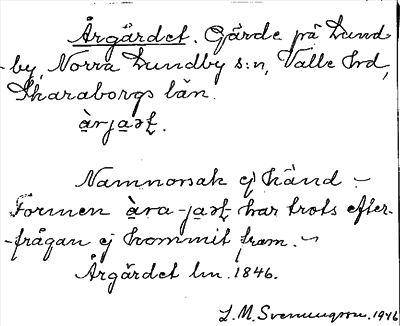 Årgärdet. Gärde på Lund-
by, Norra Lundby s:n, Valle hrd,
Skaraborgs län.
àrjaət.
Namnorsak ej känd.
Formen àra-jaət har trots efter-
frågan ej kommit fram.
Årgärdet lm. 1846.
L. M. Svenungsson. 1946